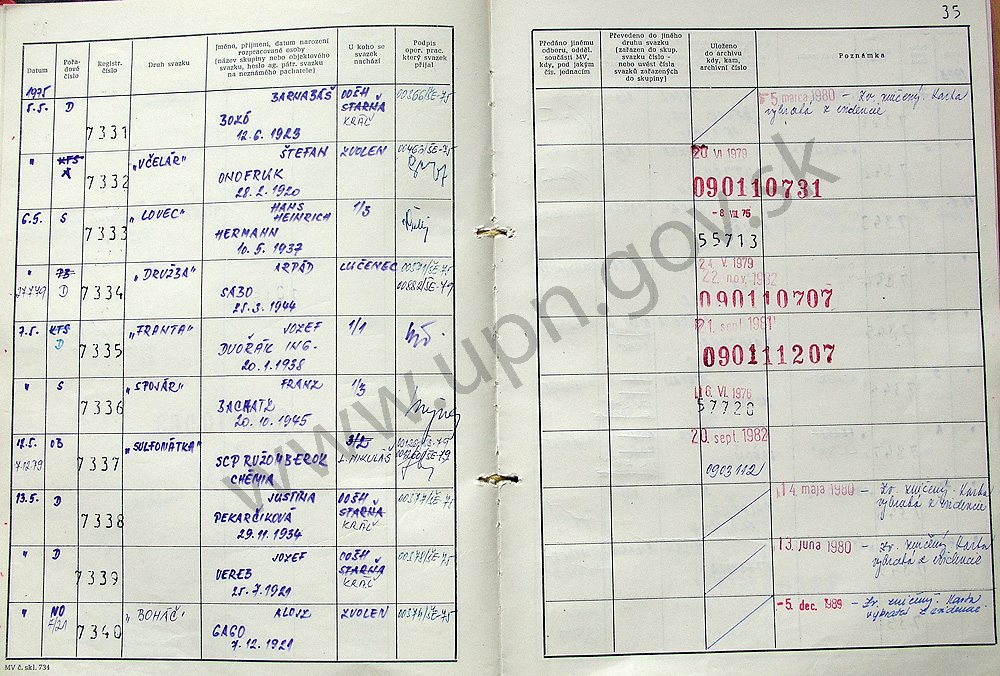 35
Datum
Pořadové číslo
Registr. číslo
Druh svazku
Jméno, příjmení, datum narození
rozpracované osoby
(název skupiny nebo objektového
svazku, heslo ag. pátr. svazku
na neznámého pachatele)
U koho se
svazek
nachází
Podpis
oper. prac.
který svazek
přijal
Předáno jinému
odboru, odděl.
součásti MV,
kdy, pod jakým
čís. jednacím
Převedeno do jiného
druhu svazku
(zařazen do skup.
svazku číslo -
nebo uvést čísla
svazků zařazených
do skupiny)
Uloženo
do archivu
kdy, kam,
archivní číslo
Poznámka
1975
5.5. D 7331 BARNABÁŠ OOŠH 00366/ŠE-75
BOZÓ STARNA
12.6.1923 KRÁĽ
5 marca 1980 - Zv. zničený. Karta
vybratá z evidencie
" KTS 7332 "VČELÁR" ŠTEFAN ZVOLEN 00463/ŠE-75
A ONOFRUK
28.2.1920
20 VI 1979
090110731
6.5. S 7333 "LOVEC" HANS 1/3
HEINRICH
HERMANN
10.5.1937
- 8 VIII 75
55713
" PB 7334 "DRUŽBA" ARPÁD LUČENEC 00571/ŠE-75
27.7.79 D SABO 00882/ŠE-79
25.3.1944
24 V. 1979
22 nov. 1982
090110707
7.5. KTS 7335 "FRANTA" JOZEF 1/1
D DVOŘÁK ING.
20.1.1938
21. sept. 1981
090111207
" S 7336 "SPOJÁR" FRANZ 1/3
BACHATZ
20.10.1945
16. VI. 1976
57720
12.5. OB 7337 "SULFONÁTKA" 3/2
7.12.79 SCP RUŽOMBEROK L. MIKULÁŠ
CHÉMIA
20. sept. 1982
0903112
13.5. D 7338 JUSTINA OOŠH 00377/ŠE-75
PEKARČÍKOVÁ STARNA
29.11.1934 KRÁĽ
14 mája 1980 - Zv. zničený. Karta
vybratá z evidencie
" D 7339 JOZEF OOŠH 00378/ŠE-75
VEREB STARNA
25.7.1921 KRÁĽ
13. júna 1980 - Zv. zničený. Karta
vybratá z evidencie
" NO 7340 "BOHÁČ" ALOJZ ZVOLEN 00376/ŠE-75
7/21 GAGO
7.12.1921
-5. dec. 1989 - Zv. zničený. Karta
vybratá z evidencie
MV č. skl. 734
www.upn.gov.sk